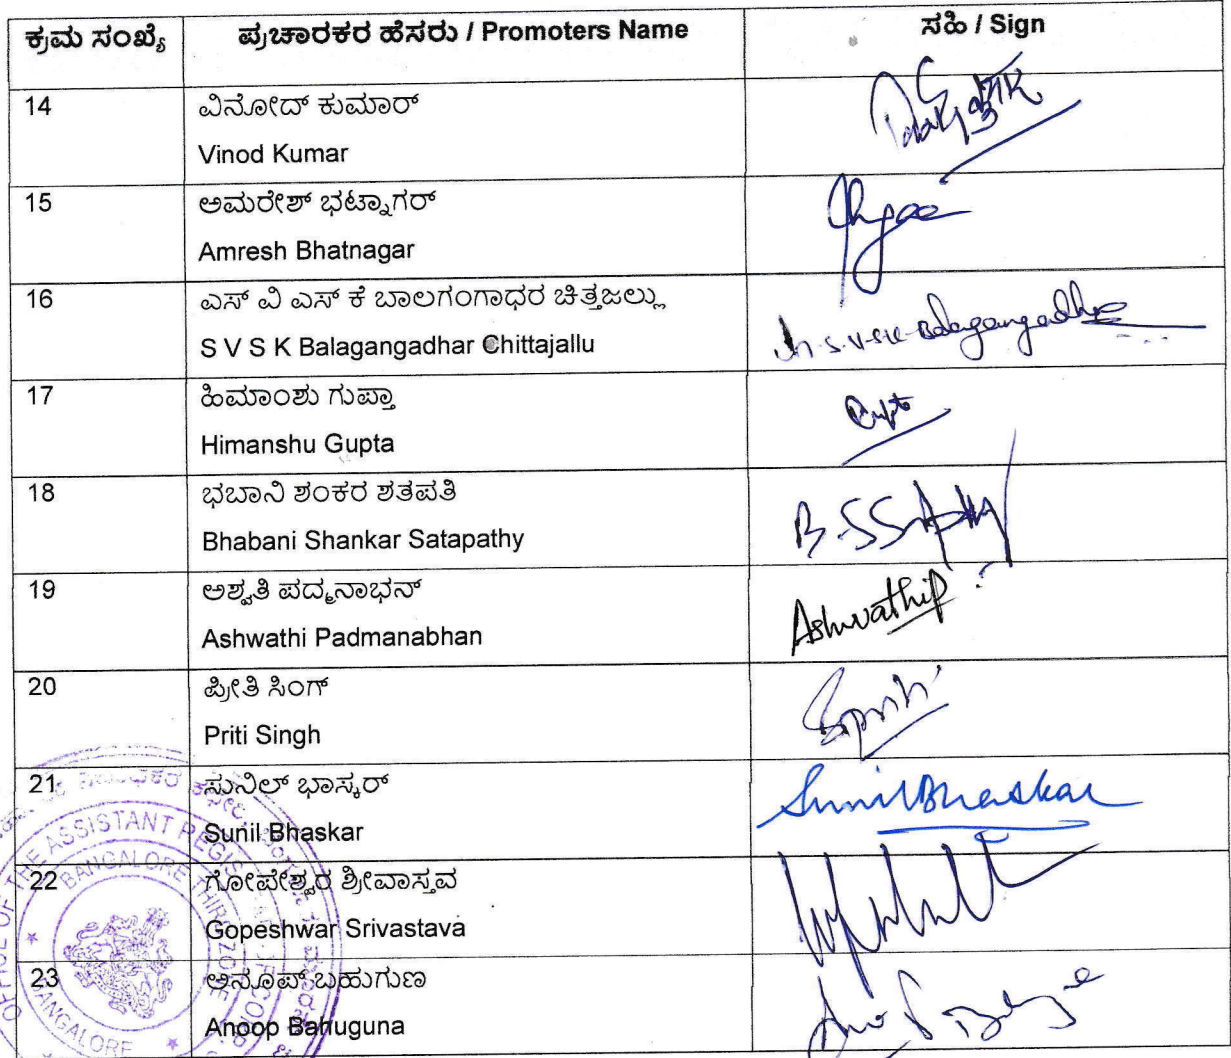 ಕ್ರಮ ಸಂಖ್ಯೆ ಪ್ರಚಾರಕರ ಹೆಸರು / Promoters Name ಸಹಿ / Sign
14 ವಿನೋದ್ ಕುಮಾರ್
Vinod Kumar
15 ಅಮರೇಶ್ ಭಟ್ನಾಗರ್
Amresh Bhatnagar
16 ಎಸ್ ವಿ ಎಸ್ ಕೆ ಬಾಲಗಂಗಾಧರ ಚಿತ್ತಜಲ್ಲು
S V S K Balagangadhar Chittajallu
17 ಹಿಮಾಂಶು ಗುಪ್ತಾ
Himanshu Gupta
18 ಭಬಾನಿ ಶಂಕರ ಶತಪತಿ
Bhabani Shankar Satapathy
B.SSatpathy
19 ಅಶ್ವತಿ ಪದ್ಮನಾಭನ್
Ashwathi Padmanabhan
AshwathiP
20 ಪ್ರೀತಿ ಸಿಂಗ್
Priti Singh
21 ಸುನಿಲ್ ಭಾಸ್ಕರ್
Sunil Bhaskar
Sunil Bhaskar
22 ಗೋಪೇಶ್ವರ ಶ್ರೀವಾಸ್ತವ
Gopeshwar Srivastava
23 ಅನೂಪ್ ಬಹುಗುಣ
Anoop Bahuguna
OFFICE OF THE ASSISTANT
BANGALORE THIRD ZONE
BANGALORE